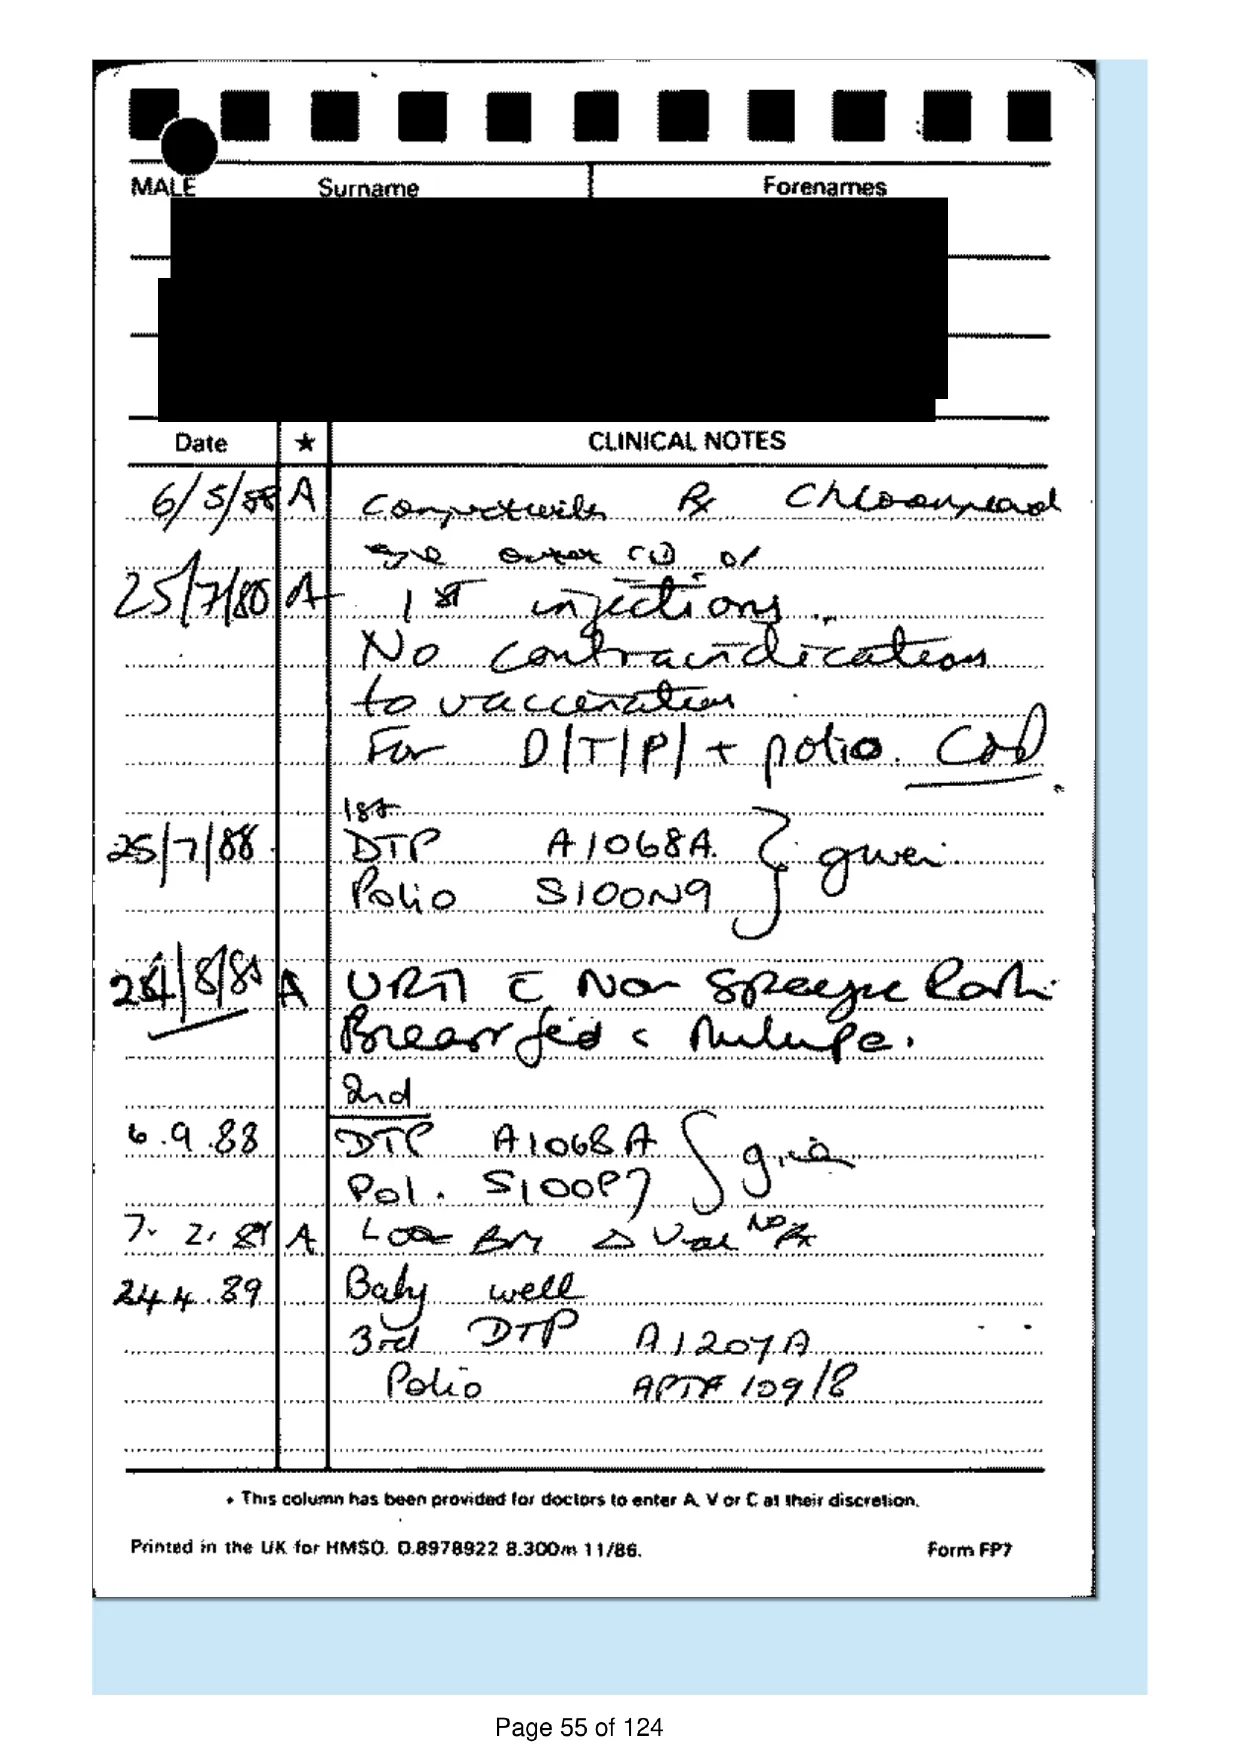 MALE Surname Forenames
Date ★ CLINICAL NOTES
6/5/88 A Conjunctivitis Rx Chloromycetin
25/7/88 A 1st injections.
No contraindications
to vaccination
For D/T/P/ + polio.
1st
25/7/88 DTP A1068A. } given
Polio S100N9
24/8/88 A URTI c Non Specific Rash
Breast fed c
2nd
6.9.88 DTP A1068A } given
Pol. S100P7
7.2.89 A Loose BM Δ Viral No Rx
24.4.89 Baby well
3rd DTP A1207A
Polio APTA 109/8
* This column has been provided for doctors to enter A, V or C at their discretion.
Printed in the UK for HMSO. D.8978922 8.300m 11/86. Form FP7
Page 55 of 124